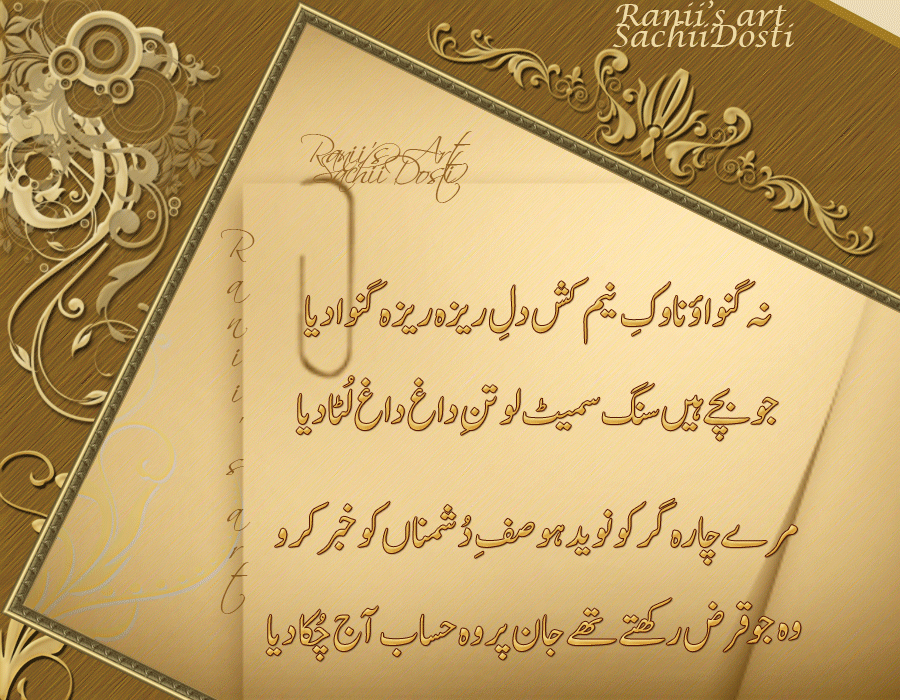 Ranii's art
SachiiDosti
Ranii's Art
Sachii Dosti
Ranii's art
نہ گنواؤ ناوکِ نیم کش دلِ ریزہ ریزہ گنوا دیا
جو بچے ہیں سنگ سمیٹ لو تنِ داغ داغ لُٹا دیا
مرے چارہ گر کو نوید ہو صفِ دُشمناں کو خبر کرو
وہ جو قرض رکھتے تھے جان پر وہ حساب آج چُکا دیا